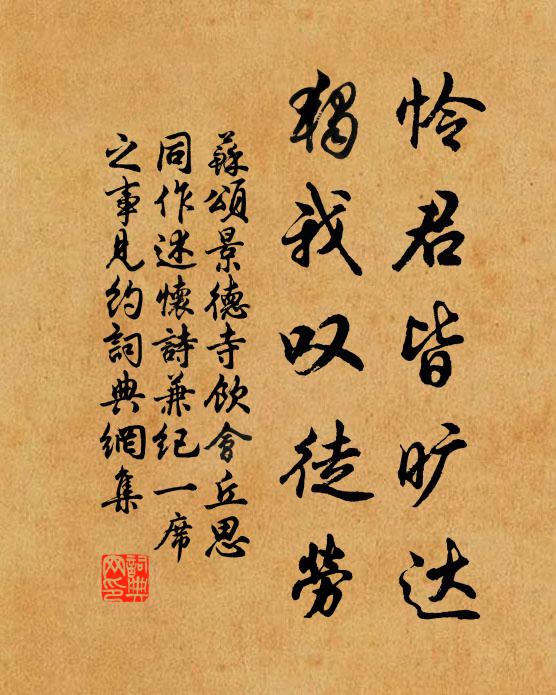 怜君皆旷达
獨我叹徒劳
蘇頌景德寺飲會丘思
同作述懷詩兼紀一席
之事見約詞典網集
詞典网印